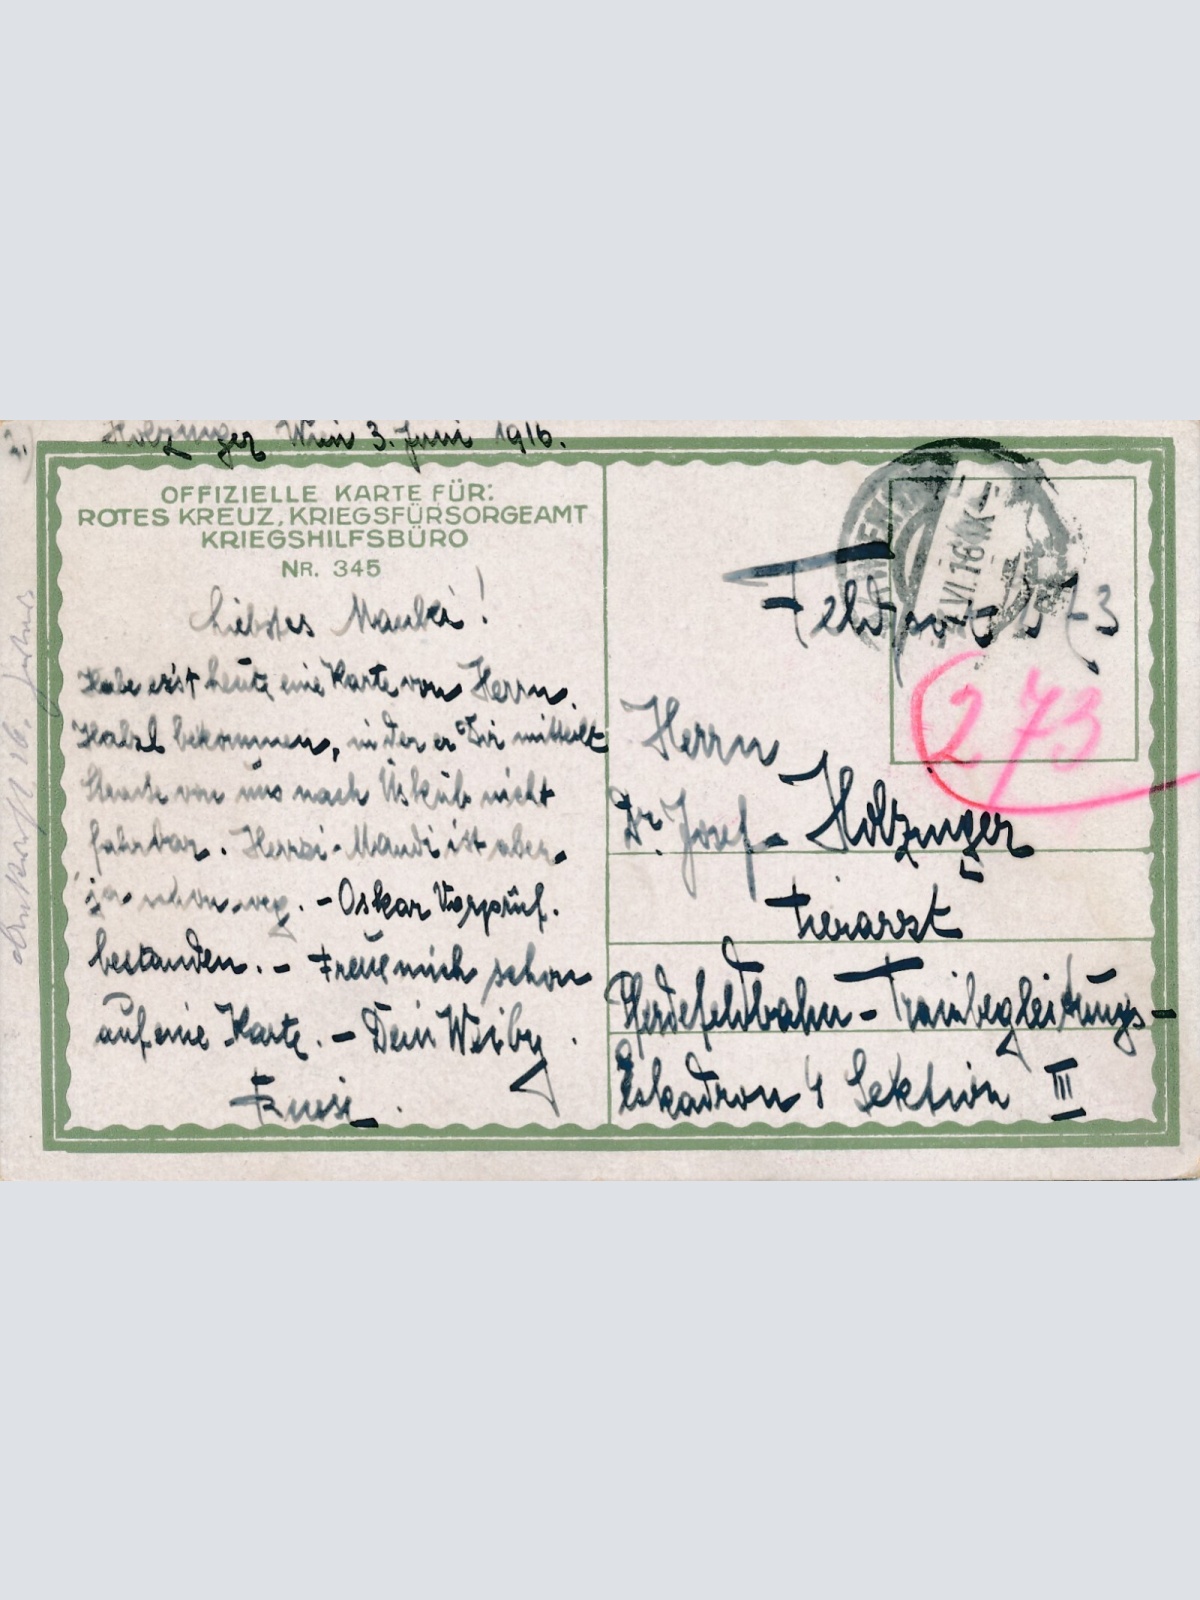 2.) Holzinger Wien 3. Juni 1916.
OFFIZIELLE KARTE FÜR:
ROTES KREUZ, KRIEGSFÜRSORGEAMT
KRIEGSHILFSBÜRO
NR. 345
Liebstes Mankei!
Habe erst heute eine Karte von Herrn
bekommen, in der er Dir mitteilt
von uns nach Üsküb nicht
fahrbar. ist aber
ja schon weg. - Oskar Vorprüf.
bestanden. - Freue mich schon
auf eine Karte. - Dein Weiby
VI.16
Feldpost 273
273
Herrn
Dr. Josef Holzinger
Tierarzt
Pferdefeldbahn - Trainbegleitungs-
Eskadron 4 Sektion III